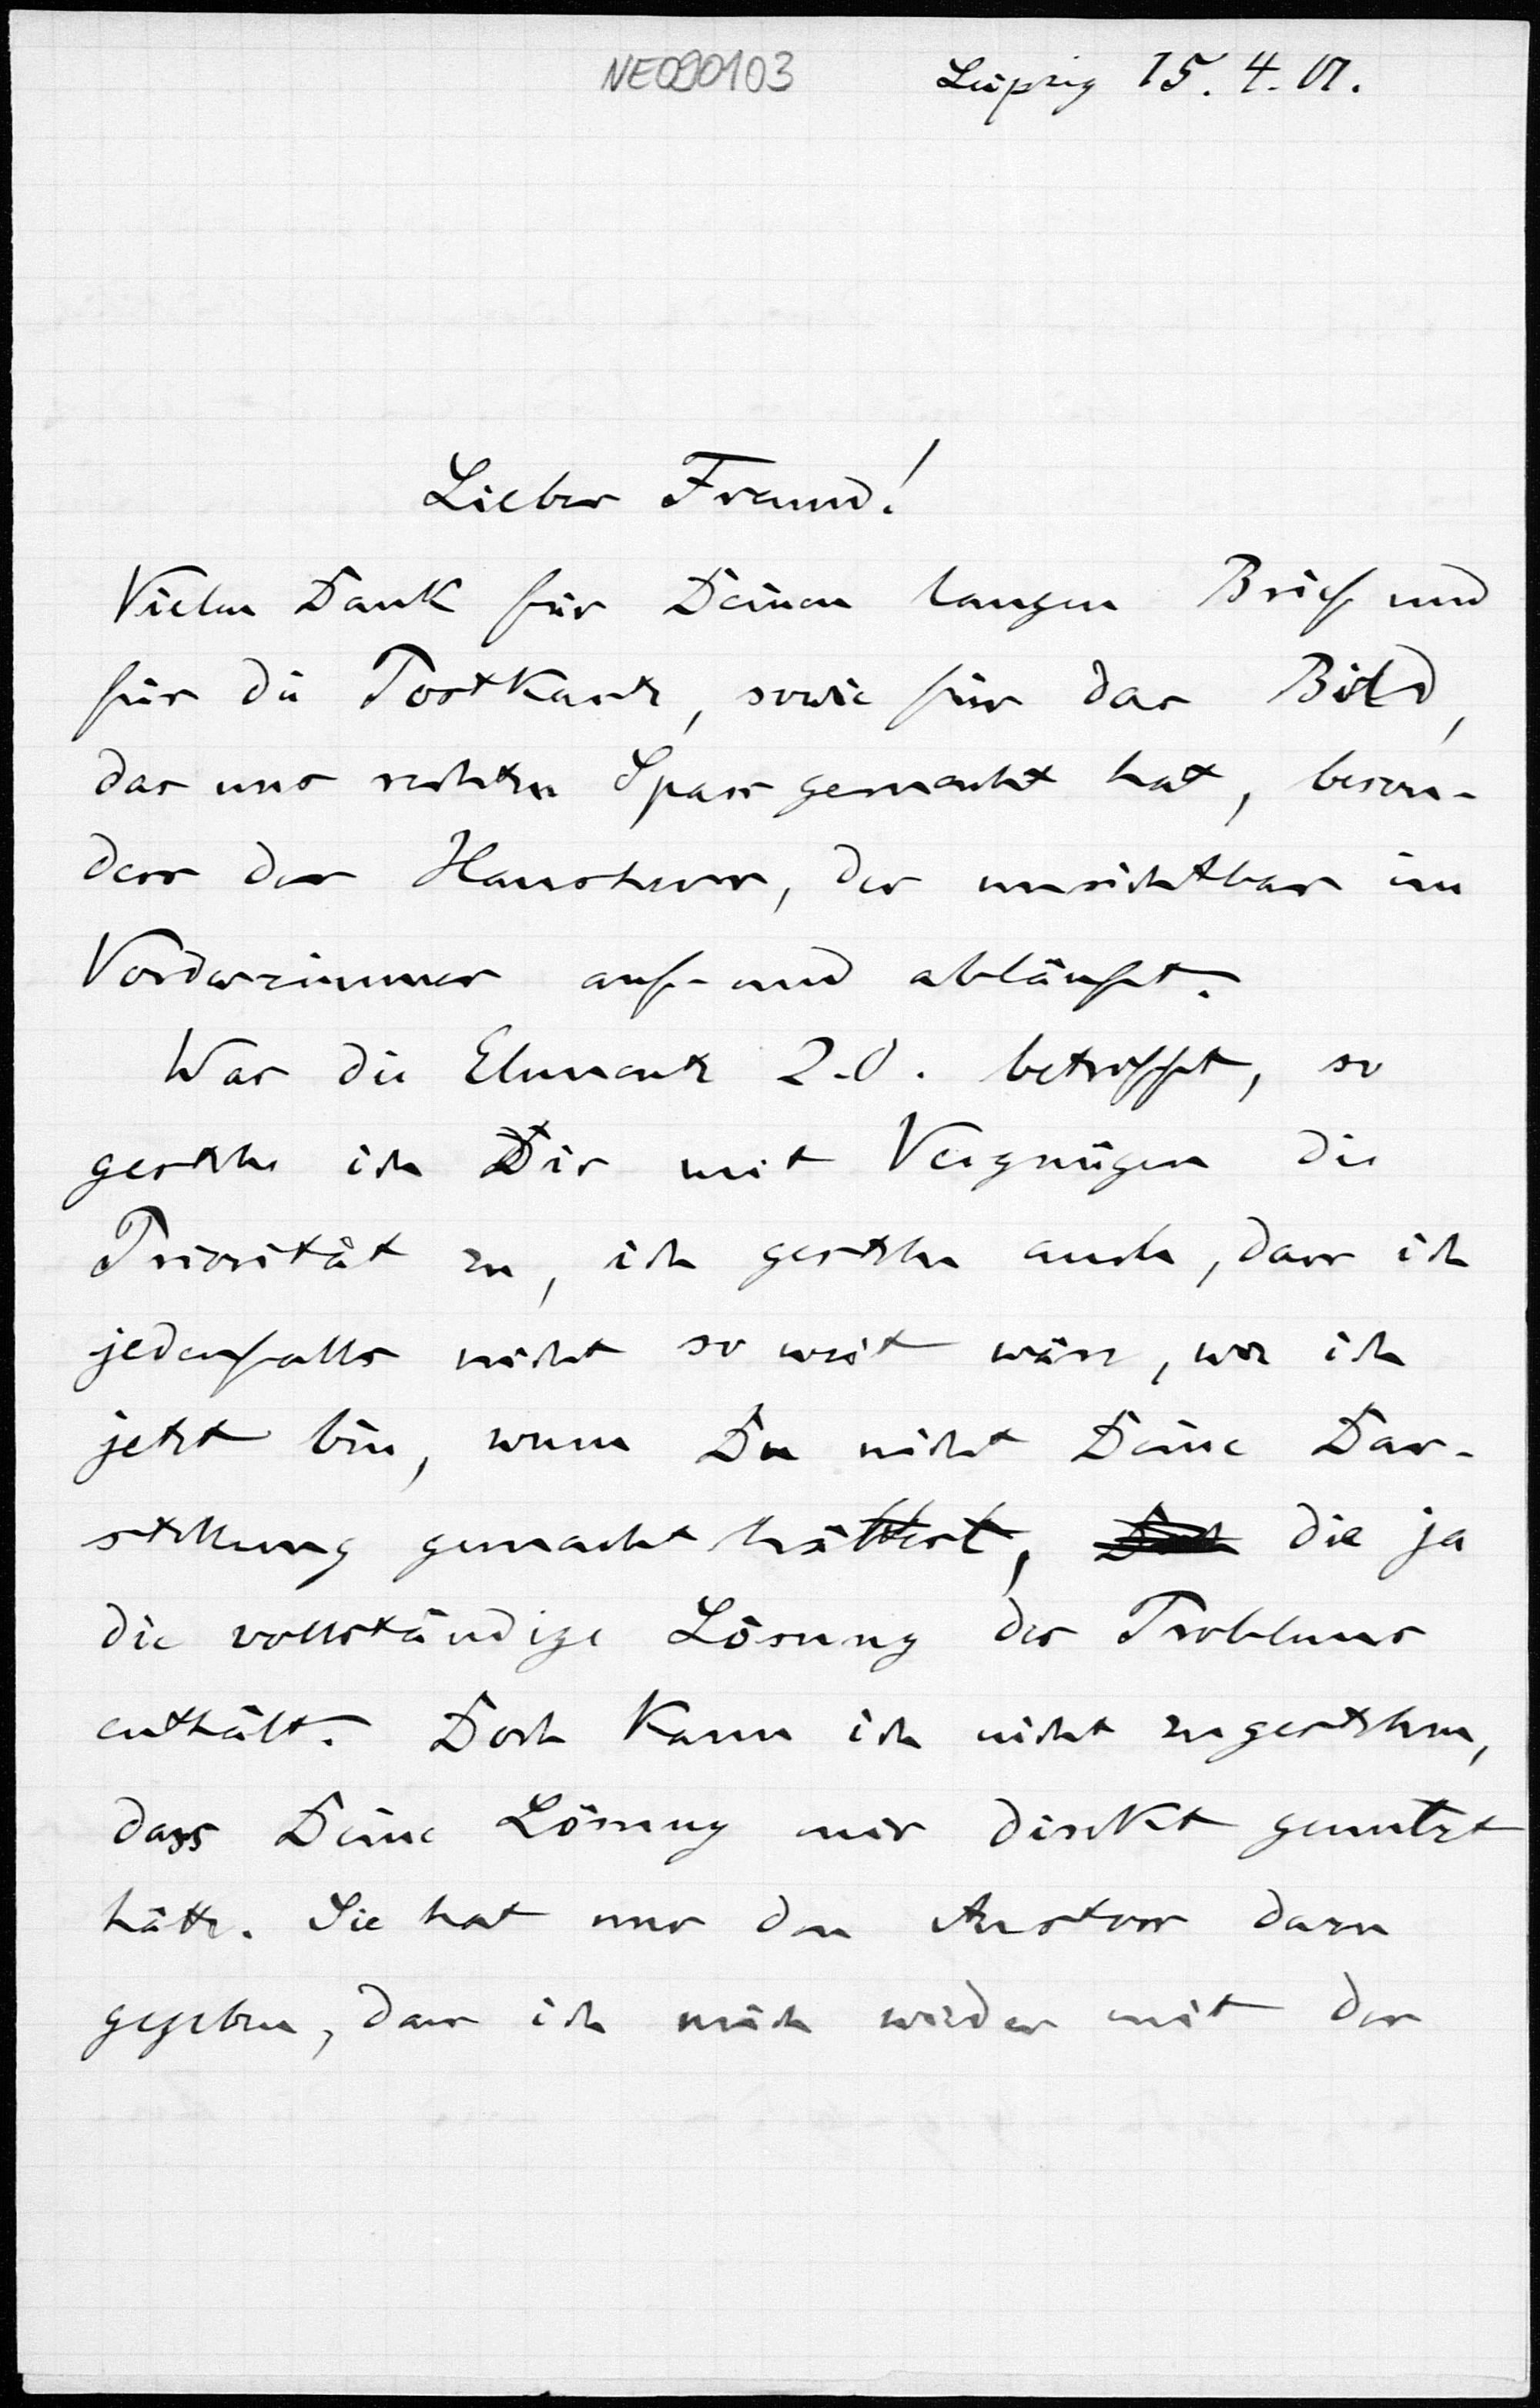 NE090103
Leipzig 15. 4. 01.
Lieber Freund!
Vielen Dank für Deinen langen Brief und
für die Postkarte, sowie für das Bild,
das uns rechten Spass gemacht hat, beson-
ders der Hausherr, der unsichtbar im
Vorderzimmer auf- und abläuft.
Was die Elemente 2.O. betrifft, so
gestehe ich Dir mit Vergnügen die
Priorität zu, ich gestehe auch, dass ich
jedenfalls nicht so weit wäre, wie ich
jetzt bin, wenn Du nicht Deine Dar-
stellung gemacht hättest, die ja
die vollständige Lösung des Problems
enthält. Doch kann ich nicht zugestehen,
dass Deine Lösung mir direkt genutzt
hätte. Sie hat nur den Anstoss dazu
gegeben, dass ich mich wieder mit der